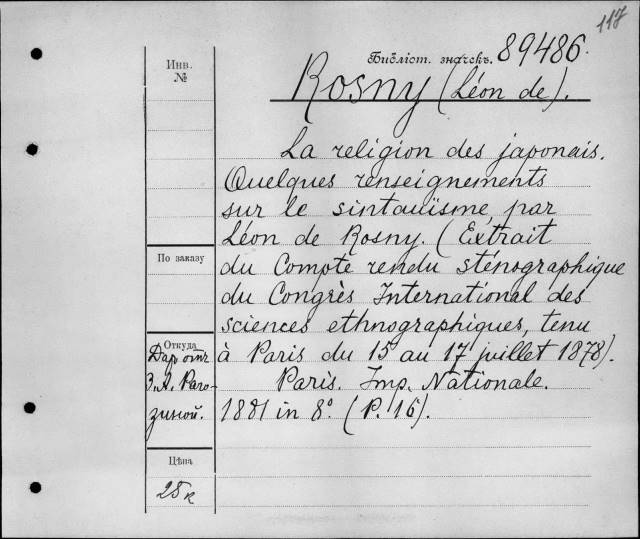 117
Библіот. значекъ. 89486.
Rosny (Léon de).
Инв. №
La religion des japonais.
Quelques renseignements
sur le sintauïsme, par
Léon de Rosny. (Extrait
По заказу
du Compte rendu sténographique
du Congrès International des
sciences ethnographiques, tenu
à Paris du 15 au 17 juillet 1878).
Откуда
Даръ отъ
З. А. Раго-
зиной.
Paris. Imp. Nationale.
1881 in 8º. (P. 16).
Цѣна
25 к